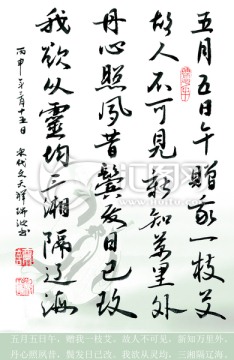 五月五日午贈我一枝艾
故人不可見新知萬里外
丹心照夙昔鬢髮日已改
我欲從靈均三湘隔遼海
丙申年二月十五日
宋代文天祥詩
五月五日午，赠我一枝艾。故人不可见，新知万里外。
丹心照夙昔，鬓发日已改。我欲从灵均，三湘隔辽海。